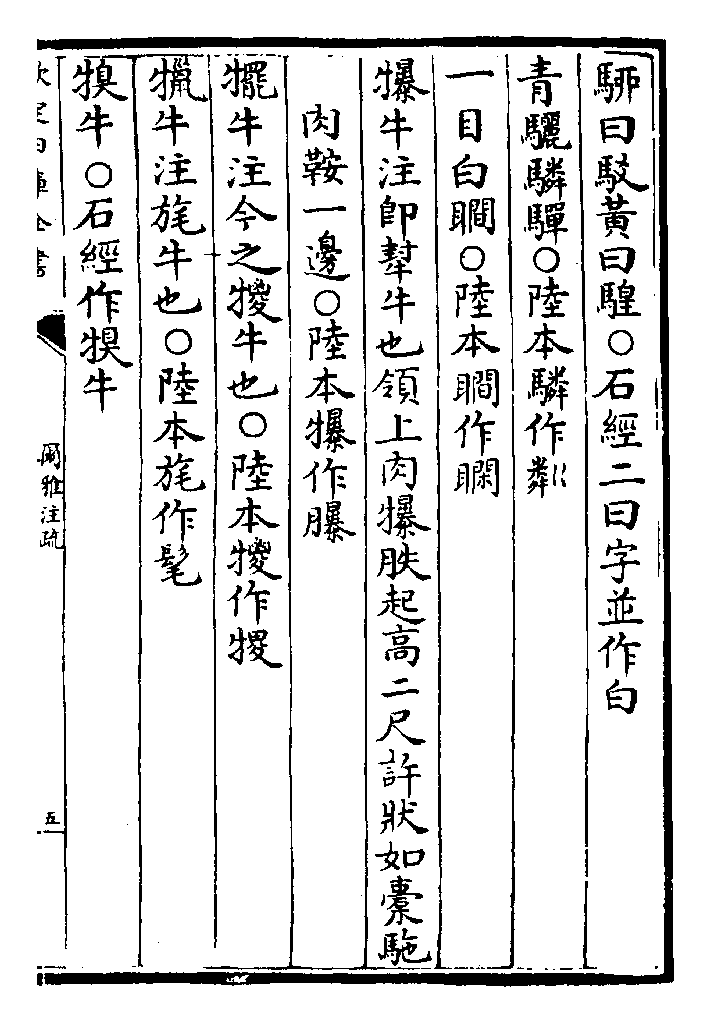 駵曰駁黃曰騜○石經二曰字並作白
青驪驎驒○陸本驎作粼
一目白瞷○陸本瞷作瞯
犦牛注即犎牛也領上肉犦胅起高二尺許狀如橐駞
肉鞍一邊○陸本犦作㬥
犤牛注今之㹎牛也○陸本㹎作㹎
犣牛注旄牛也○陸本旄作髦
犑牛○石經作犑牛
欽定四庫全書
爾雅注疏
五